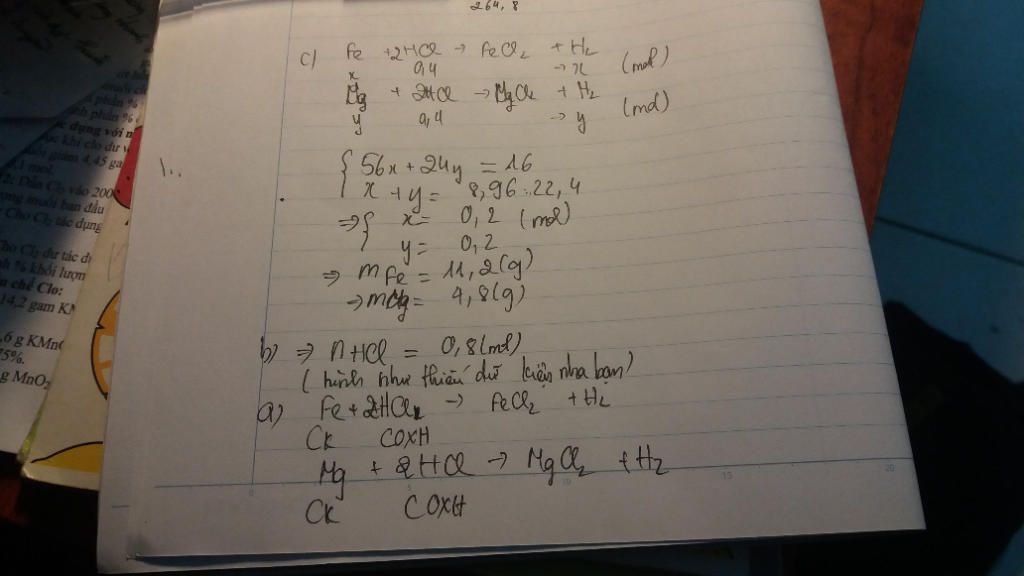 264,8
c) Fe + 2HCl → FeCl₂ + H₂
x 0,4 → x (mol)
Mg + 2HCl → MgCl₂ + H₂
y 0,4 → y (mol)
{ 56x + 24y = 16
x + y = 8,96 : 22,4
⇒ { x = 0,2 (mol)
y = 0,2
⇒ mFe = 11,2(g)
→ mMg = 4,8(g)
b) ⇒ nHCl = 0,8(mol)
(hình như thiếu dữ kiện nha bạn)
a) Fe + 2HCl → FeCl₂ + H₂
CK COXH
Mg + 2HCl → MgCl₂ + H₂
CK COXH
ác dụng với
khí clo dư
giảm 4,45 ga
1 mol.
2: Dẫn Cl₂ vào 200
muối ban đầu
Cho Cl₂ tác dụng
Cho Cl₂ dư tác
% khối lượn
chế Clo:
14,2 gam KM
,6 g KMn
75%.
g MnO₂
0 10 15 20